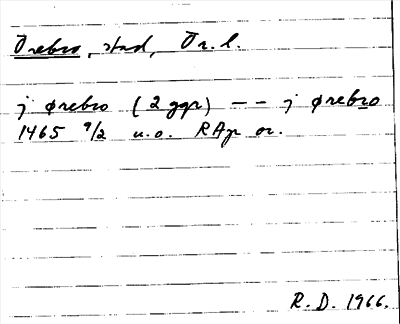 Örebro, stad, Ör. l.
j ørebro (2 ggr) -- j ørebro
1465 9/2 u.o. RAp or.
R. D. 1966.